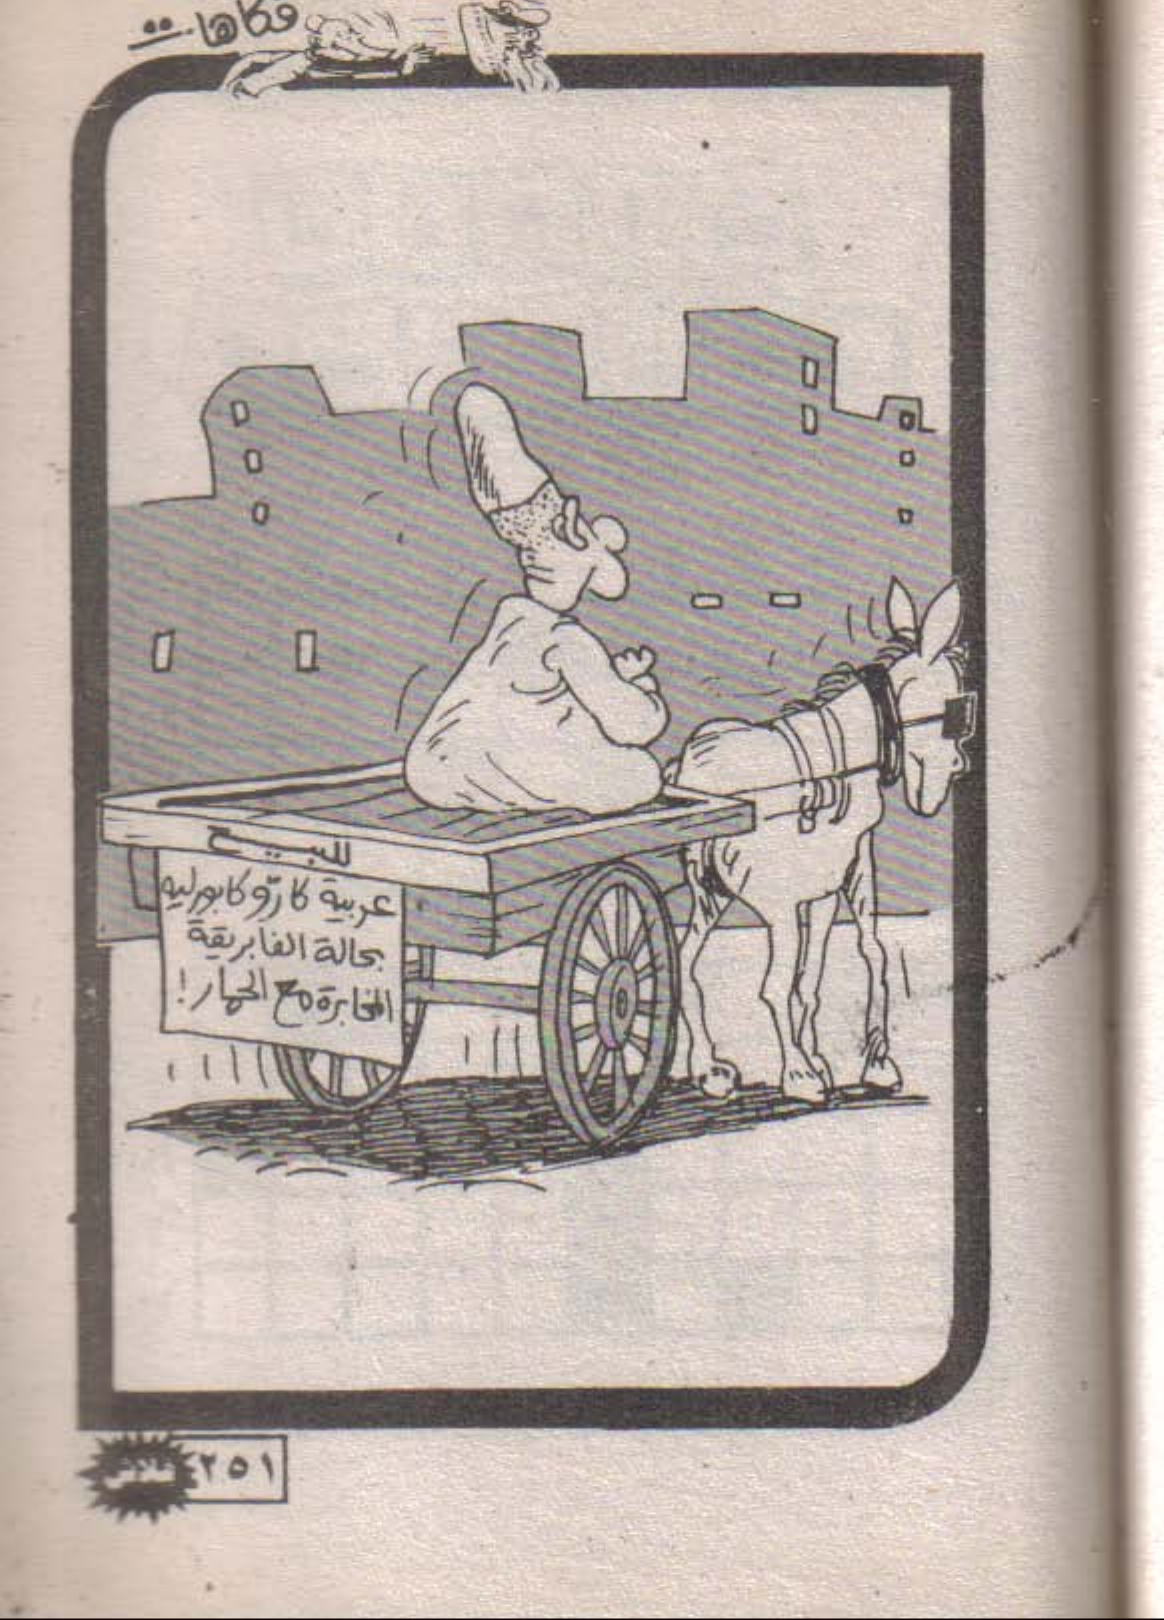 فكاهات
للبيـــع
عربية كارّو كابورليه
بحالة الفابريقة
المخابرة مع الحمار!
٢٥١